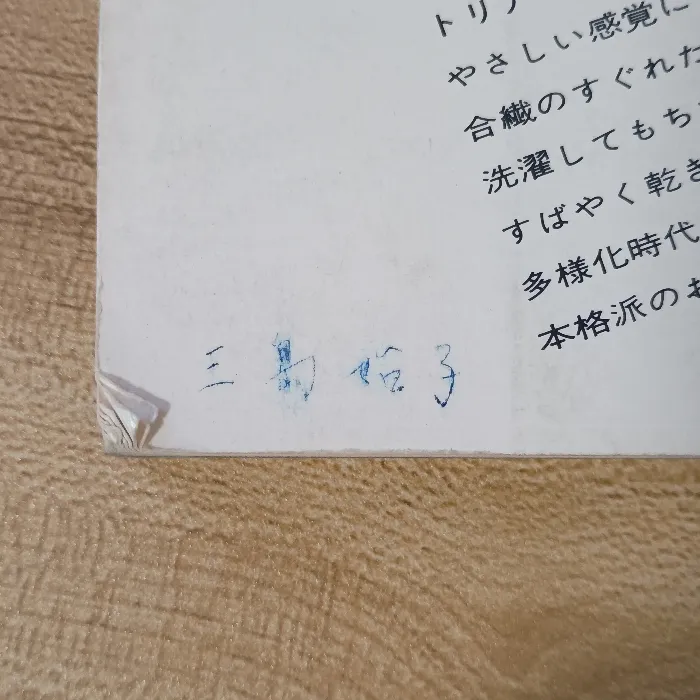 トリア
やさしい感覚に
合繊のすぐれた
洗濯してもち
すばやく乾き
多様化時代
本格派のお
三島 子